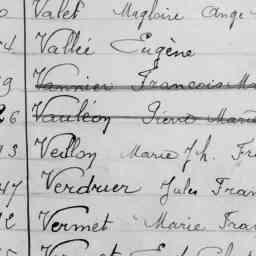 Valet Magloire Ange
4 Vallée Eugène
9 Vannier Francois Ma
26 Vauléon Pierre Marie
13 Veillon Marie Jh. Fr
47 Verdrier Jules Fran
12 Vermet Marie Fra